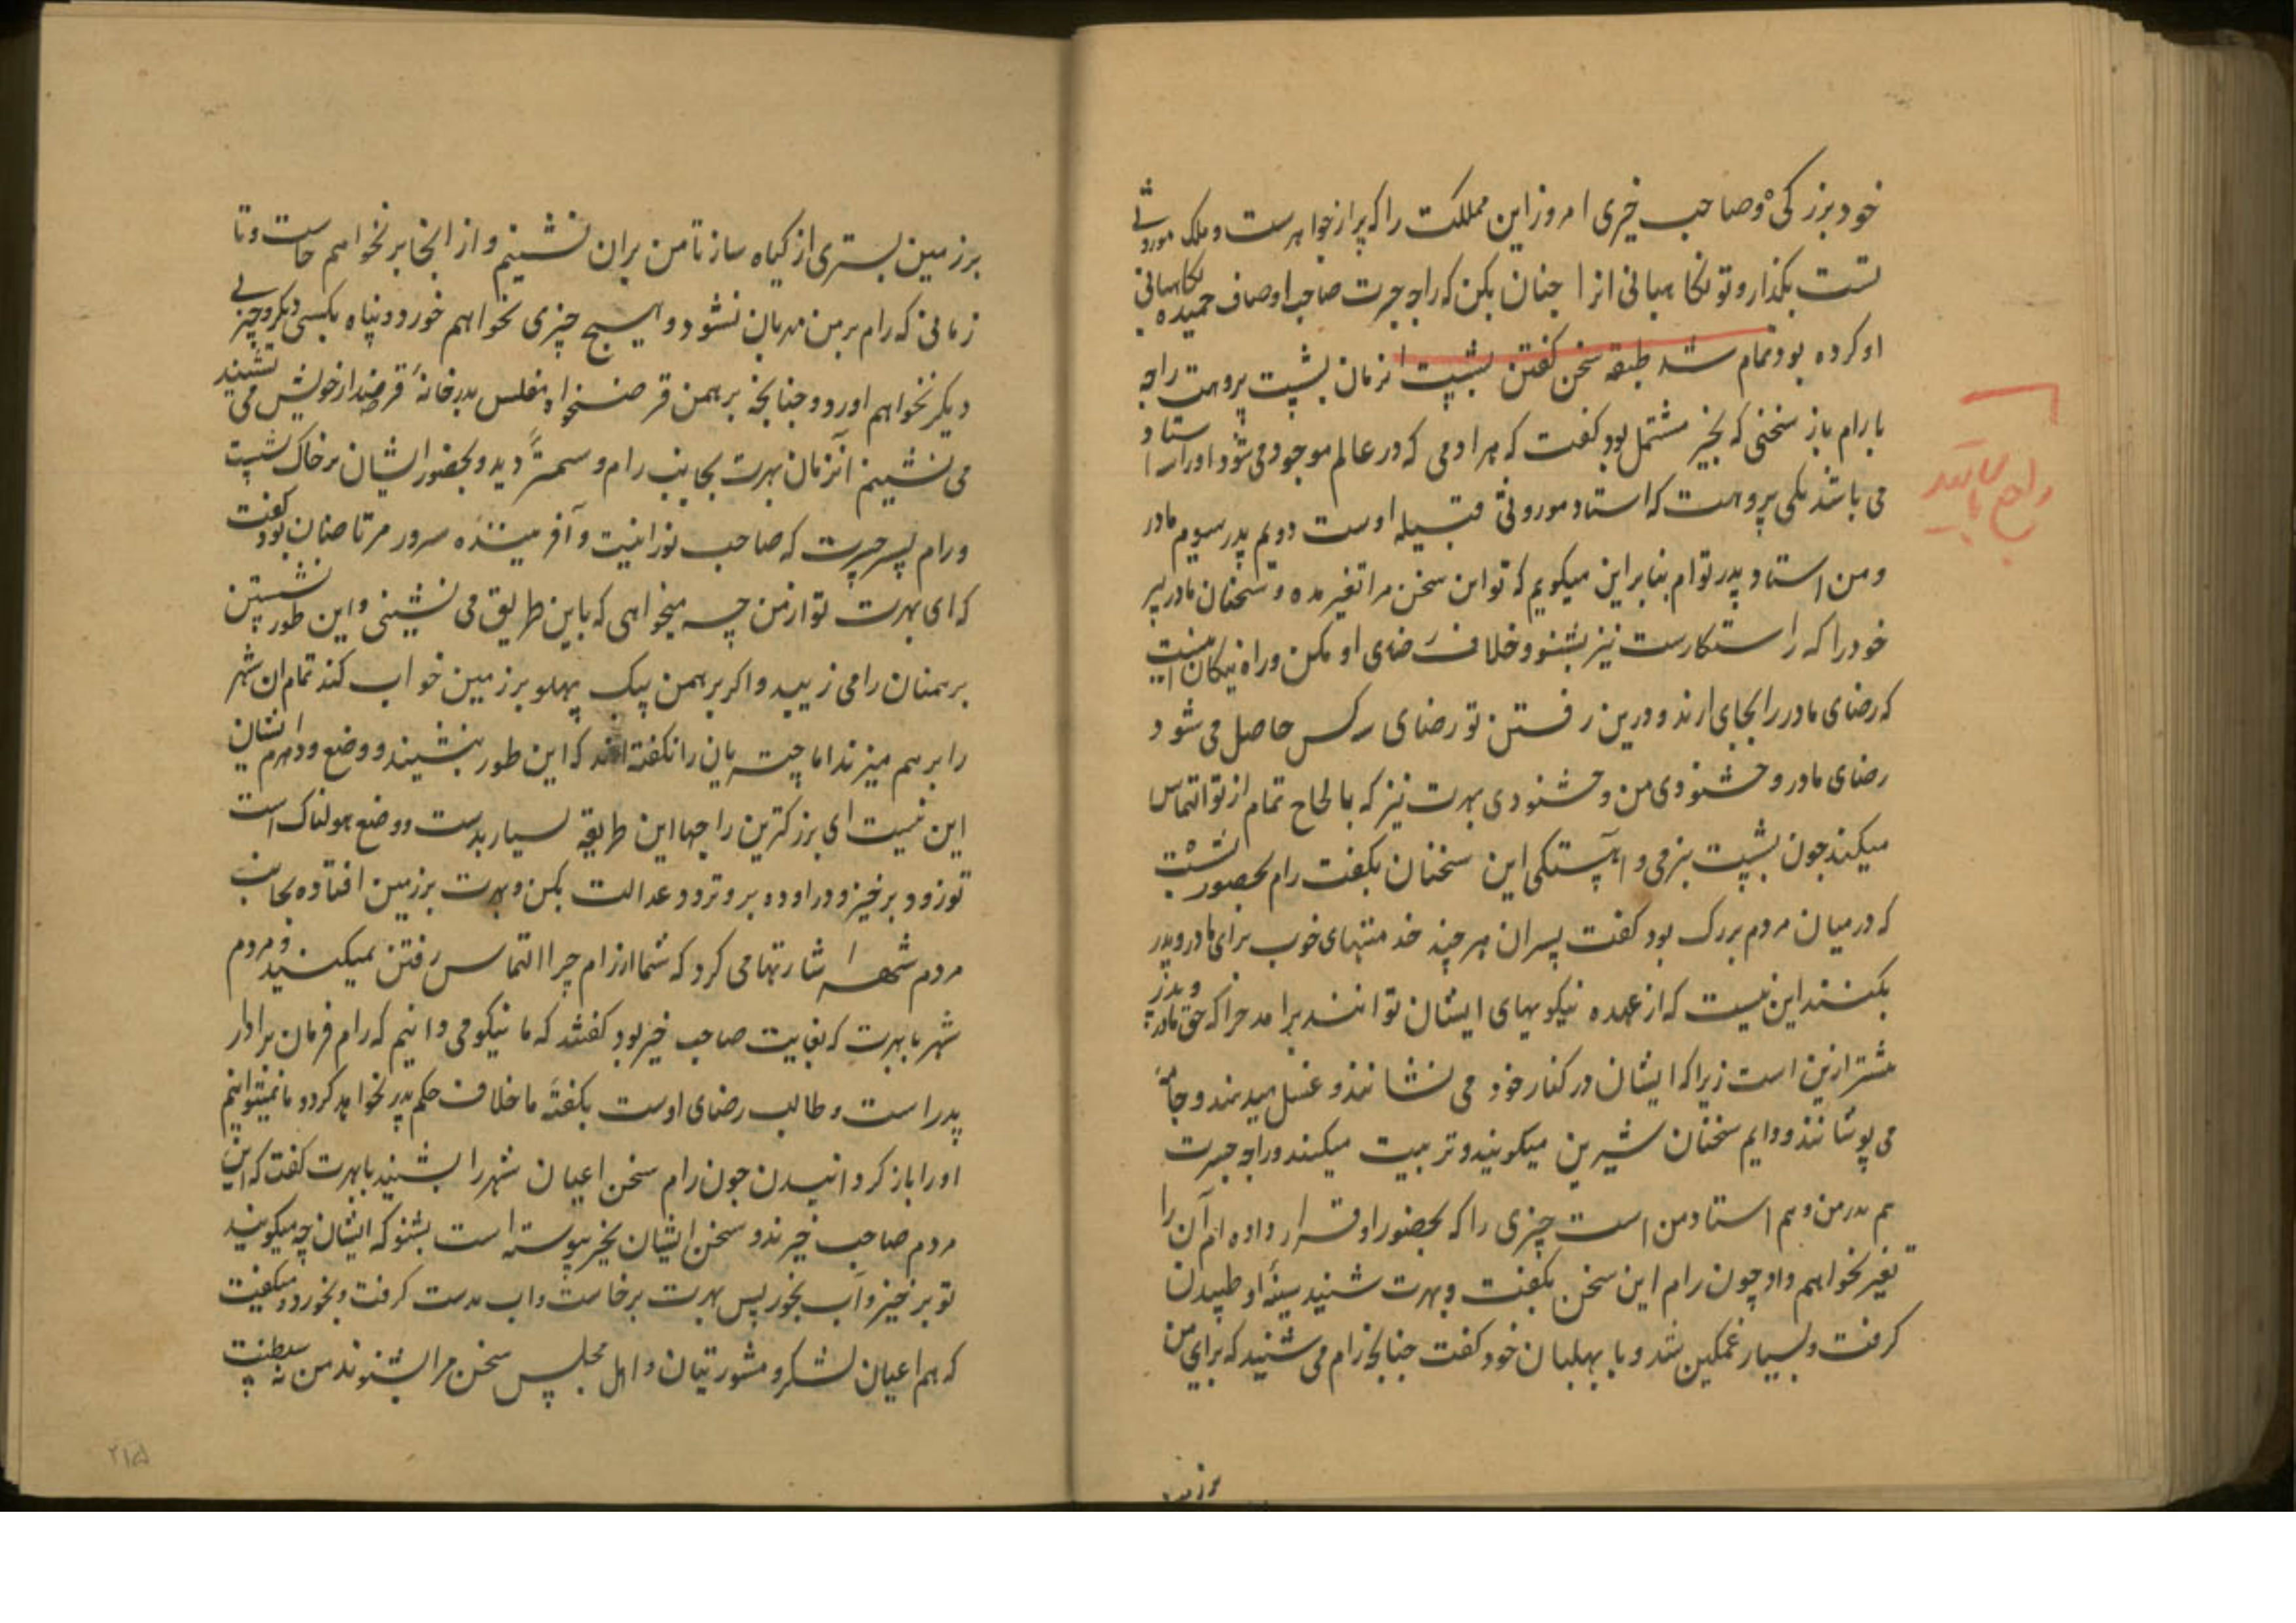 خود بزرگی و صاحب خیری امروز این مملکت را که پر از جواهرست و ملک موروثی
تست بگذار و تو نگاهبانی انرا چنان بکن که راجه جسرت صاحب اوصاف حمیده نگاهبانی
او کرده بود تمام شد طبقه سخن گفتن بشپت انزمان بشپت پروهت راجه
با رام باز سخنی که بخیر مشتمل بود گفت که هر ادمی که در عالم موجود می شود او را سه استاد
می باشد یکی پروهت که استاد موروثی قبیله اوست دویم پدر سیوم مادر
و من استاد پدر تو ام بنابراین میگویم که تو این سخن مرا تغیر مده و سخنان مادر پیر
خود را که راستکارست نیز بشنو و خلاف رضای او مکن و راه نیکان اینست
که رضای مادر را بجای ارند و درین رفتن تو رضای سه کس حاصل می شود
رضای مادر و خشنودی من و خشنودی بهرت نیز که بالحاح تمام از تو التماس
میکند چون بشپت بنرمی و اهستگی این سخنان بگفت رام بحضور بشپت
که در میان مردم بزرگ بود گفت پسران هر چند خدمتهای خوب برای مادر و پدر
بکنند این نیست که از عهده نیکویهای ایشان توانند برامد چرا که حق مادر و پدر
بیشتر ازین است زیرا که ایشان در کنار خود می نشانند و غسل میدهند و جامه
می پوشانند و دایم سخنان شیرین میگویند و تربیت میکنند و راجه جسرت
هم پدر من و هم استاد من است چیزی را که بحضور او قرار داده ام آن را
تغیر نخواهم داد چون رام این سخن بگفت و بهرت شنید سینهٔ او طپیدن
گرفت و بسیار غمگین شد و با بهلبان خود گفت چنانچه رام می شنید که برای من
بر زمین
بر زمین بستری از گیاه ساز تا من بران نشینم و از اینجا بر نخواهم خاست و تا
زمانی که رام بر من مهربان نشود و هیچ چیزی نخواهم خورد و پناه بکسی دیگر و چیزی
دیگر نخواهم اورد و چنانچه برهمن قرضخواه مفلس بدر خانهٔ قرضدار خویش می نشیند
می نشینم انزمان بهرت بجانب رام و سمنتر دید و بحضور ایشان بر خاک نشست
و رام پسر جسرت که صاحب نورانیت و آفریننده سرور مرتاضان بود گفت
که ای بهرت تو از من چه میخواهی که باین طریق می نشینی و این طور نشستن
برهمنان را می زیبد و اگر برهمن بیک پهلو بر زمین خواب کند تمام ان شهر
را برهم میزند اما چتریان را نگفته اند که این طور بنشینند و وضع و دهرم ایشان
این نیست ای بزرگترین راجها این طریقه بسیار بدست و وضع هولناک است
تو زود برخیز و در اوده برو و ترود عدالت بکن و بهرت بر زمین افتاده بجانب
مردم شهر اشارتها می کرد که شما از رام چرا التماس رفتن نمیکنید و مردم
شهر با بهرت که بغایت صاحب خیر بود گفتند که ما نیکو می دانیم که رام فرمان بردار
پدر است و طالب رضای اوست بگفتهٔ ما خلاف حکم پدر نخواهد کرد و ما نمیتوانیم
او را باز گردانیدن چون رام سخن اعیان شهر را بشنید با بهرت گفت که این
مردم صاحب خیرند و سخن ایشان بخیر پیوسته است بشنو که ایشان چه میگویند
تو برخیز و آب بخور پس بهرت برخاست و اب بدست گرفت و بخورد و میگفت
که هم اعیان لشکر و مشورتیان و اهل مجلس سخن مرا بشنوند من نه سلطنت
۲۱۵